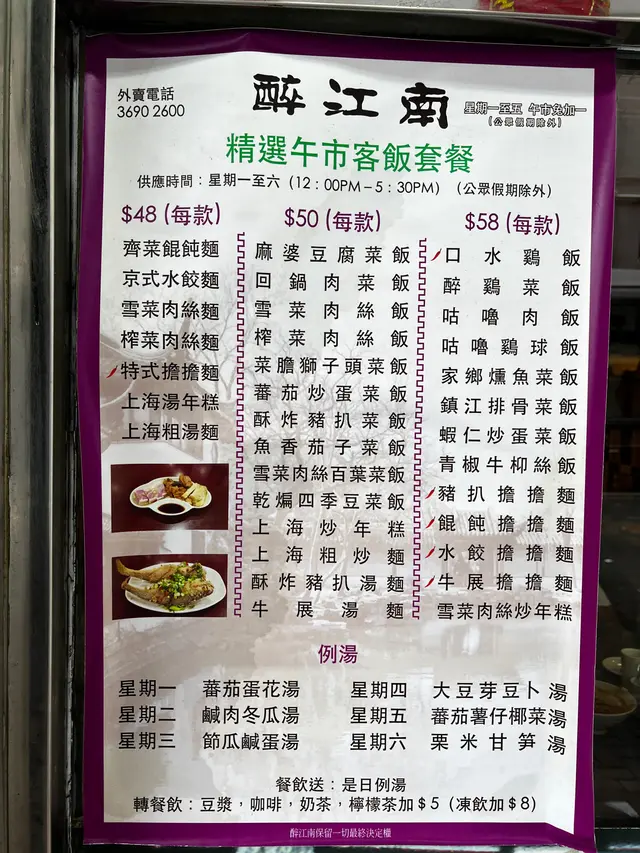 外賣電話
3690 2600
醉江南
星期一至五 午市免加一
(公眾假期除外)
精選午市客飯套餐
供應時間：星期一至六（12：00PM－5：30PM）（公眾假期除外）
$48 (每款)
齊菜餛飩麵
京式水餃麵
雪菜肉絲麵
榨菜肉絲麵
特式擔擔麵
上海湯年糕
上海粗湯麵
$50 (每款)
麻婆豆腐菜飯
回鍋肉菜飯
雪菜肉絲飯
榨菜肉絲飯
菜膽獅子頭菜飯
蕃茄炒蛋菜飯
酥炸豬扒菜飯
魚香茄子菜飯
雪菜肉絲百葉菜飯
乾煸四季豆菜飯
上海炒年糕
上海粗炒麵
酥炸豬扒湯麵
牛展湯麵
$58 (每款)
口水鷄飯
醉鷄菜飯
咕嚕肉飯
咕嚕鷄球飯
家鄉燻魚菜飯
鎮江排骨菜飯
蝦仁炒蛋菜飯
青椒牛柳絲飯
豬扒擔擔麵
餛飩擔擔麵
水餃擔擔麵
牛展擔擔麵
雪菜肉絲炒年糕
例湯
星期一 蕃茄蛋花湯
星期二 鹹肉冬瓜湯
星期三 節瓜鹹蛋湯
星期四 大豆芽豆卜湯
星期五 蕃茄薯仔椰菜湯
星期六 粟米甘笋湯
餐飲送：是日例湯
轉餐飲：豆漿，咖啡，奶茶，檸檬茶加＄5（凍飲加＄8）
醉江南保留一切最終決定權